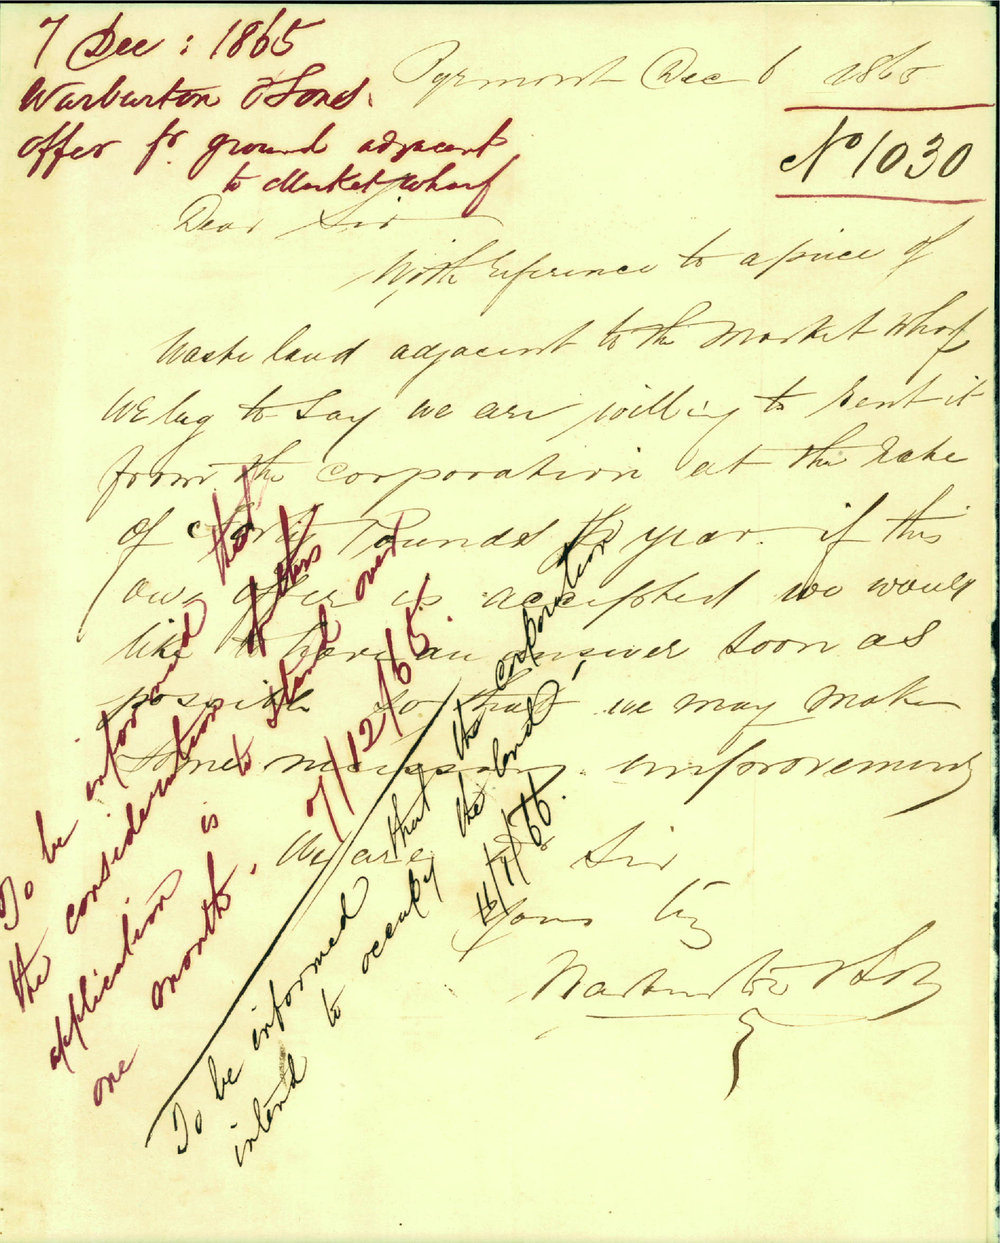 7 Dec : 1865
Warburton & Sons.
Offer fr ground adjacent
to Market Wharf
Pyrmont Dec 6 1865
No 1030
Dear Sir
With reference to a piece of
Waste land adjacent to the Market Wharf
We beg to Say we are willing to Rent it
from the Corporation at the Rate
of Forty Pounds year. if this
our offer is accepted we would
like to have an answer soon as
possible So that we may make
Some necessary improvements
We are Sir
Yours
Warburton & Son
To be informed that
the consideration of this
application is to stand over
one month. 7/12/65.
To be informed that the corporation
intend to occupy the land
11/1/66.